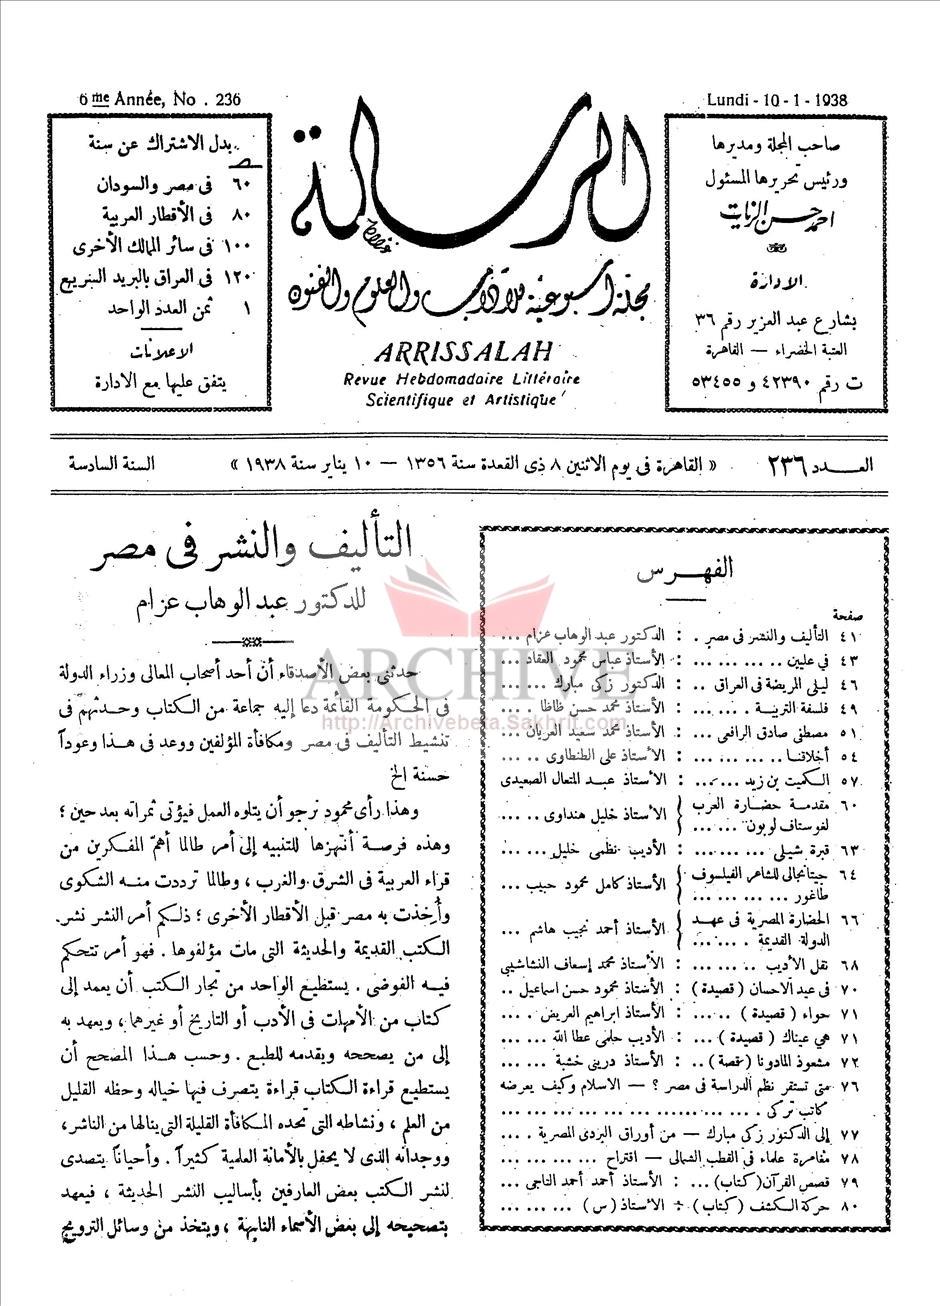 6me Année, No. 236
Lundi - 10 - 1 - 1938
صاحب المجلة ومديرها
ورئيس تحريرها المسئول
احمد حسن الزيات
الإدارة
بشارع عبد العزيز رقم ٣٦
العتبة الخضراء — القاهرة
ت رقم ٤٢٣٩٠ و ٥٣٤٥٥
الرسالة
مجلة أسبوعية للآداب والعلوم والفنون
ARRISSALAH
Revue Hebdomadaire Littéraire
Scientifique et Artistique
بدل الاشتراك عن سنة
٦٠ فى مصر والسودان
٨٠ فى الأقطار العربية
١٠٠ فى سائر الممالك الأخرى
١٢٠ فى العراق بالبريد السريع
١ ثمن العدد الواحد
الاعلانات
يتفق عليها مع الادارة
العـــدد ٢٣٦
« القاهرة فى يوم الاثنين ٨ ذى القعدة سنة ١٣٥٦ — ١٠ يناير سنة ١٩٣٨ »
السنة السادسة
الفهـرس
صفحة
٤١ التأليف والنشر فى مصر . : الدكتور عبد الوهاب عزام ...
٤٣ فى عليين .. ... ... ... : الأستاذ عباس محمود العقاد ...
٤٦ ليلى المريضة فى العراق .. : الدكتور زكى مبارك ... ...
٤٩ فلسفة التربيـة . ... ... : الأستاذ محمد حسن ظاظا . ...
٥١ مصطفى صادق الرافعى ... : الأستاذ محمد سعيد العريان ...
٥٤ أخلاقنـا .. ... ... ... : الأستاذ على الطنطاوى .. ...
٥٧ الـكميت بن زيد ... ... : الأستاذ عبـد المتعال الصعيدى
٦٠ مقدمـة حضـارة العرب لغوستاف لوبون ... ... } الأستاذ خليل هنداوى .. ...
٦٣ قبرة شيلى ... ... ... : الأديب نظمى خليل ... ...
٦٤ جيتانجالى للشاعر الفيلسوف طاغور ... ... ... } الأستاذ كامل محمود حبيب ...
٦٦ الحضارة المصرية فى عهـد الدولة القديمة . ... ... } الأستاذ أحمد نجيب هاشم ...
٦٨ نقل الأديب .. ... ... : الأستاذ محمد إسعاف النشاشيبى
٧٠ فى عيد الاحسان ( قصيدة ) : الأستاذ محمود حسن اسماعيل ..
٧١ حواء ( قصيدة ) .. ... : الأستاذ ابراهيم العريض . ...
٧١ هى عيناك ( قصيدة ) ... : الأديب حلمى عطا الله ... ...
٧٢ مشعوذ المادونا ( قصة ) .. : الأستاذ درينى خشبة ... ...
٧٦ متى تستقر نظم الدراسة فى مصر ؟ — الاسلام وكيف يعرضه
كاتب تركى . ... ... ... ... ... ...
٧٧ إلى الدكتور زكى مبارك — من أوراق البردى المصرية . ...
٧٨ مغامرة علماء فى القطب الشمالى — اقتراح ... ... ... ...
٧٩ قصص القرآن (كتاب) ... : الأستاذ أحمد أحمد التاجى ...
٨٠ حركة الـكشف ( كتاب ) : الأستاذ ( س ) ... ... ...
التأليف والنشر فى مصر
للدكتور عبد الوهاب عزام
حدثنى بعض الأصدقاء أن أحد أصحاب المعالى وزراء الدولة
فى الحكومة القائمة دعا إليه جماعة من الكتاب وحدثهم فى
تنشيط التأليف فى مصر ومكافأة المؤلفين ووعد فى هـذا وعوداً
حسنة الخ
وهذا رأى محمود نرجو أن يتلوه العمل فيؤتى ثمراته بعد حين ؛
وهذه فرصـة أنتهزها للتنبيه إلى أمر طالما أهمّ المفكرين من
قراء العربية فى الشرق والغرب ، وطالما ترددت منـه الشكوى
وأُخذت به مصر قبل الأقطار الأخرى ؛ ذلـكم أمر النشر نشر
الكتب القديمة والحديثة التى مات مؤلفوها . فهو أمر تتحكم
فيـه الفوضى . يستطيع الواحد من تجار الكتب أن يعمد إلى
كتاب من الأمهات فى الأدب أو التاريخ أو غيرهما ، ويعهد به
إلى من يصححه ويقدمه للطبع . وحسب هـذا المصحح أن
يستطيع قراءة الـكتاب قراءة يتصرف فيها خياله وحظه القليل
من العلم ، ونشاطه التى تحده المـكافأة القليلة التى ينالها من الناشر ،
ووجدانه الذى لا يحفل بالأمانة العلمية كثيراً . وأحياناً يتصدى
لنشر الكتب بعض العارفين بأساليب النشر الحديثة ، فيعهد
بتصحيحه إلى بعض الأسماء النابهة ، ويتخذ من وسائل الترويج
ARCHIVE
http://Archivebeta.Sakhrit.com